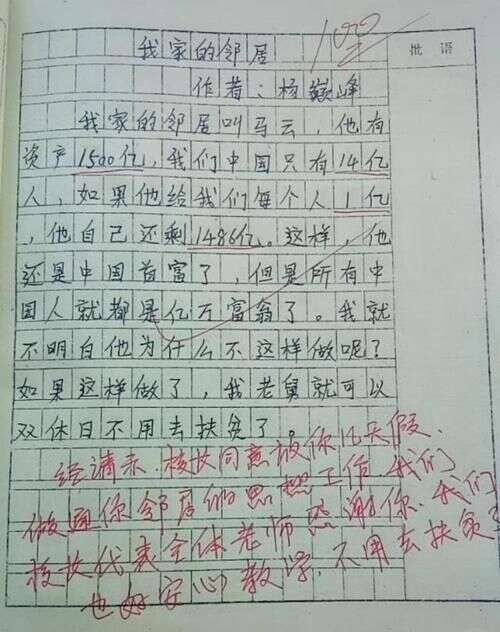 100
批语
我家的邻居
作者:杨巅峰
我家的邻居叫马云,他有
资产1500亿,我们中国只有14亿
人,如果他给我们每个人1亿
,他自己还剩1486亿。这样,他
还是中国首富了,但是所有中
国人就都是亿万富翁了。我就
不明白他为什么不这样做呢?
如果这样做了,我老舅就可以
双休日不用去扶贫了。
经请示.校校同意放你几天假.
做通你邻居的思想工作,我们
校校代表全体老师感谢你.我们
也好安心教学,不用去扶贫了